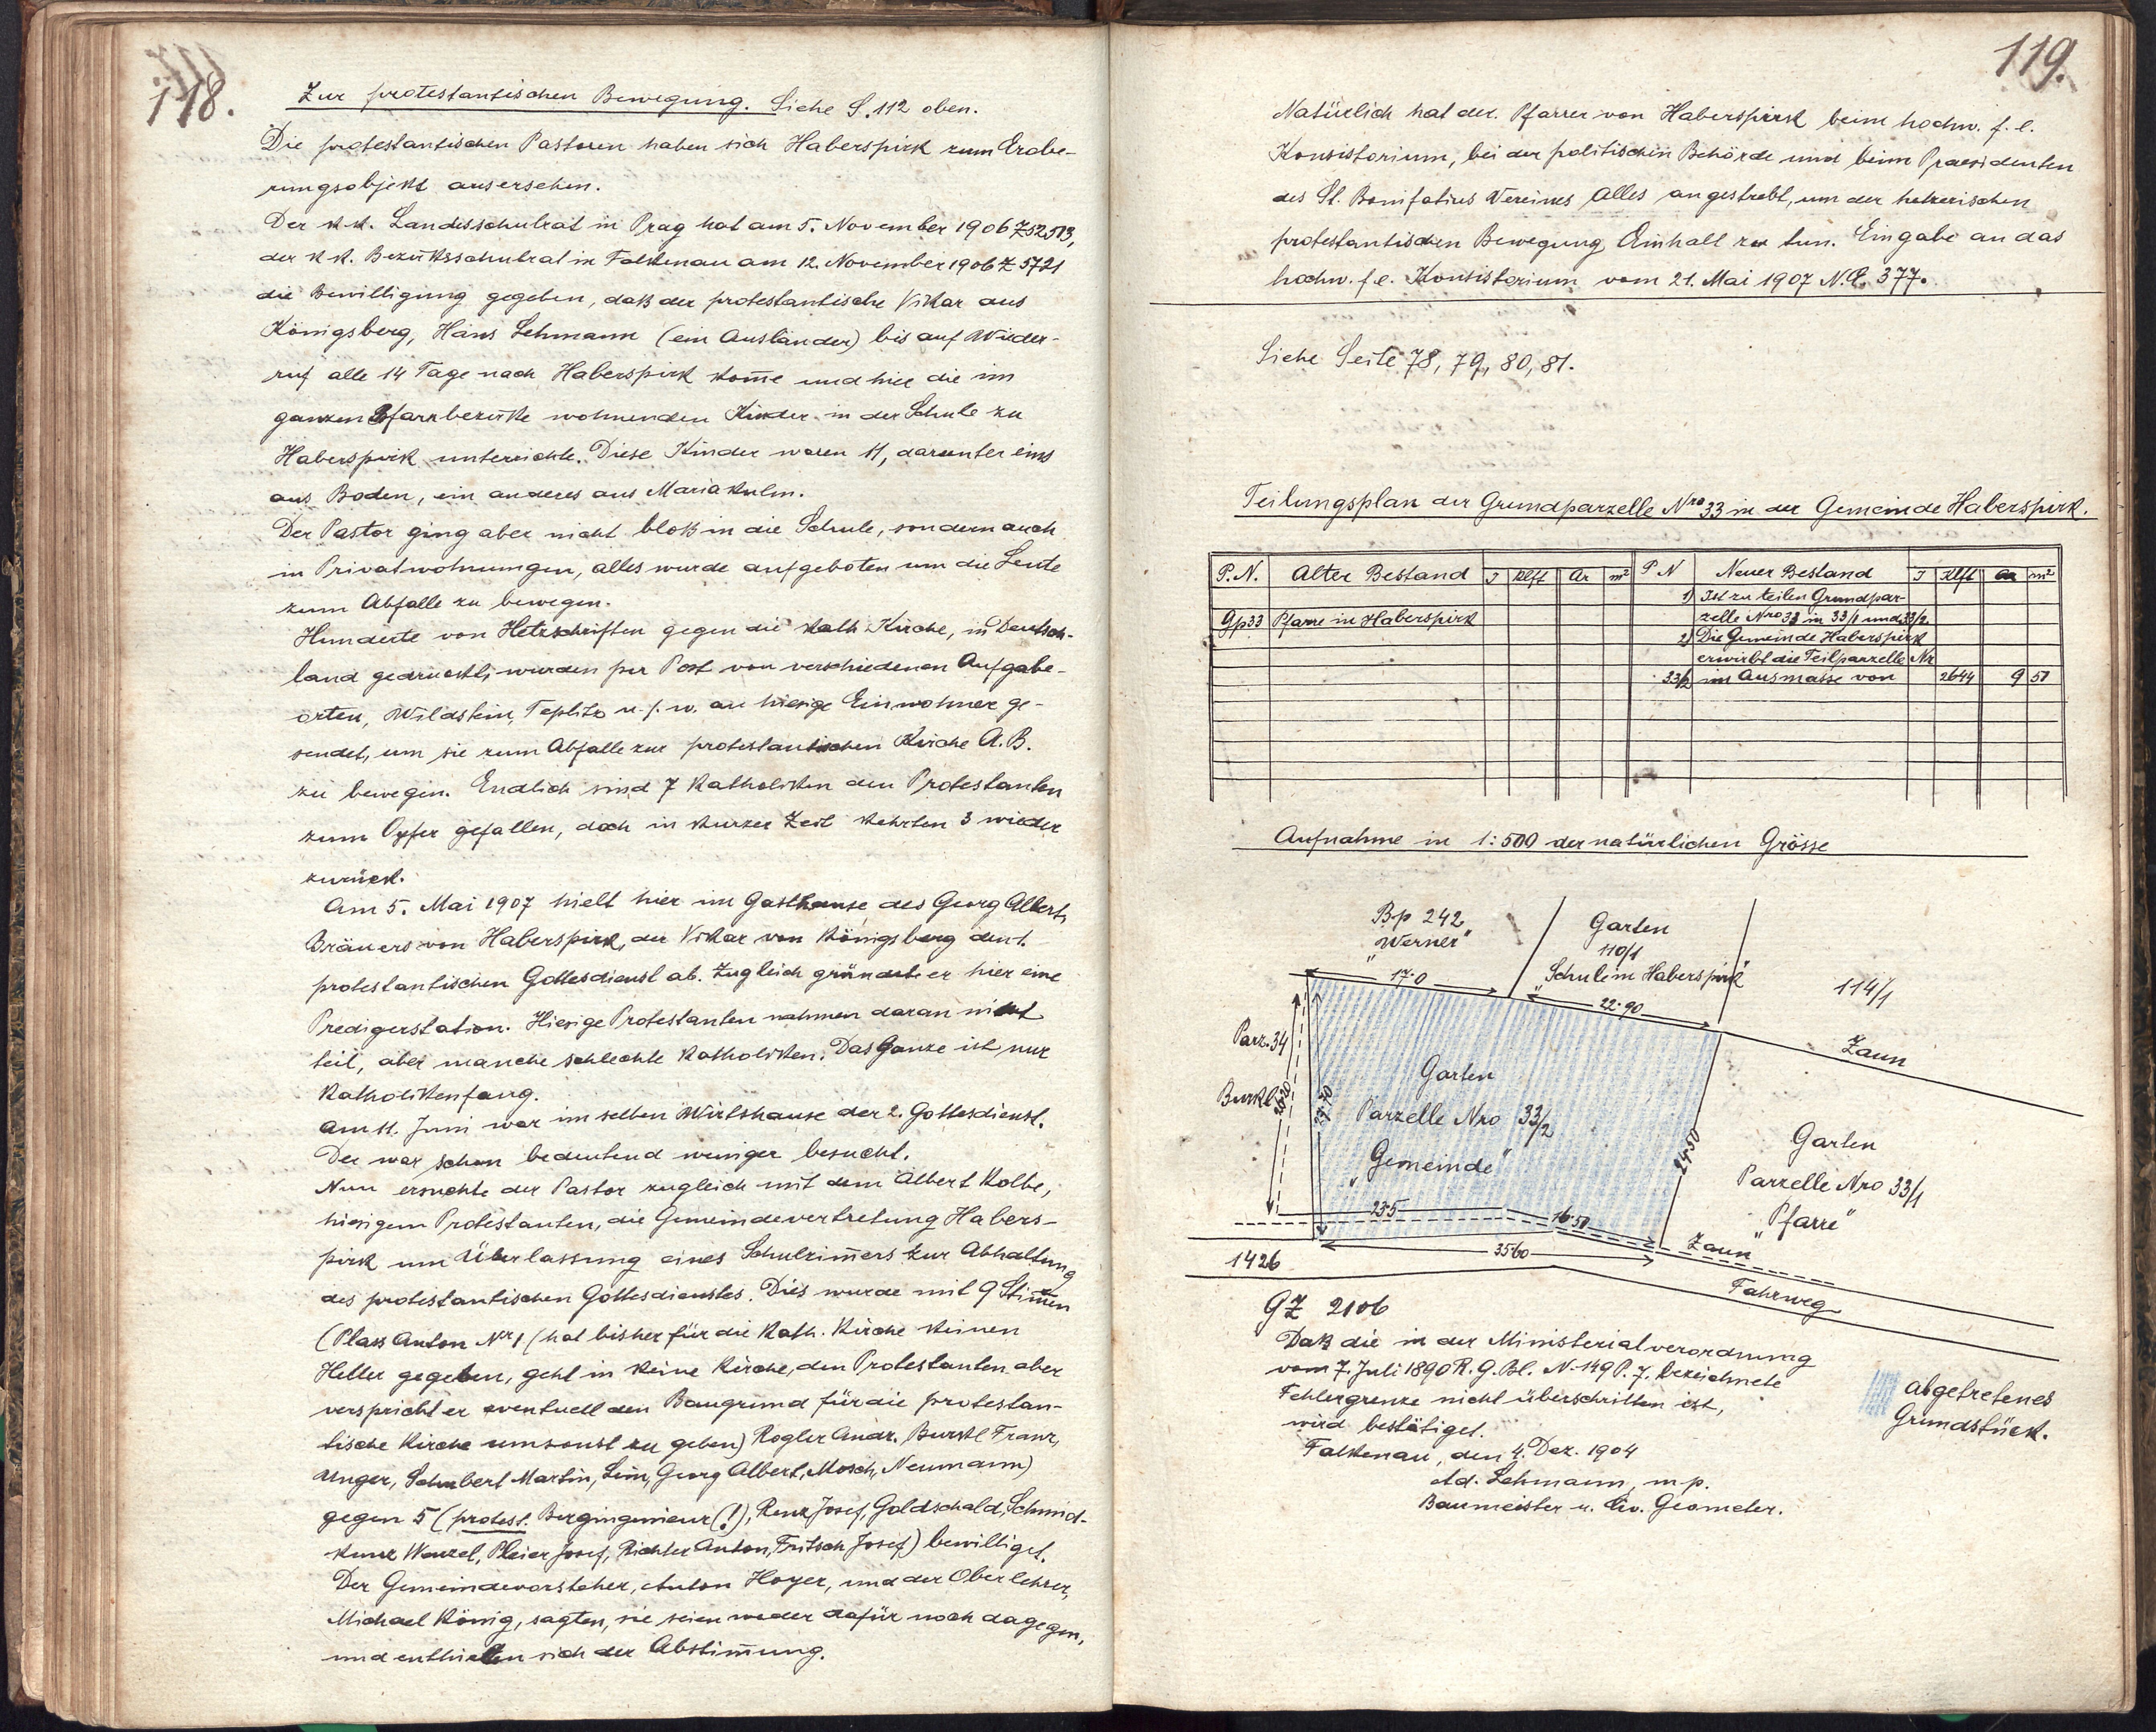 118.
Zur protestantischen Bewegung. Siehe S. 112 oben.
Die protestantischen Pastoren haben sich Haberspirk zum Erobe-
rungsobjekt ausersehen.
Der k. k. Landesschulrat in Prag hat am 5. November 1906 Z 52513,
der k k. Bezirksschulrat in Falkenau am 12. November 1906 Z 5721
die Bewilligung gegeben, daß der protestantische Vikar aus
Königsberg, Hans Lehmann (ein Ausländer) bis auf Wieder-
ruf alle 14 Tage nach Haberspirk kom̅e und hier die im
ganzen Pfarrbezirke wohnenden Kinder in der Schule zu
Haberspirk unterrichte. Diese Kinder waren 11, darunter eins
aus Boden, ein anderes aus Maria Kulm.
Der Pastor ging aber nicht bloß in die Schule, sondern auch
in Privatwohnungen, alles wurde aufgeboten um die Leute
zum Abfalle zu bewegen.
Hunderte von Hetzschriften gegen die kath Kirche, in Deutsch-
land gedruckt, wurden per Post von verschiedenen Aufgabe-
orten, Wildstein, Teplitz u. s. w. an hiesige Einwohner ge-
sendet, um sie zum Abfalle zur protestantischen Kirche A. B.
zu bewegen. Endlich sind 7 Katholiken den Protestanten
zum Opfer gefallen, doch in kurzer Zeit kehrten 3 wieder
zurück.
Am 5. Mai 1907 hielt hier im Gasthause des Georg Albert,
Bräuers von Haberspirk, der Vikar von Königsberg den 1.
protestantischen Gottesdienst ab. Zugleich gründete er hier eine
Predigerstation. Hiesige Protestanten nahmen daran nicht
teil, aber manche schlechte Katholiken. Das Ganze ist nur
Katholikenfang.
Am 11. Juni war im selben Wirtshause der 2. Gottesdienst.
Der war schon bedeutend weniger besucht.
Nun ersuchte der Pastor zugleich mit dem Albert Kolbe,
hiesigem Protestanten, die Gemeindevertretung Habers-
pirk um Überlassung eines Schulzim̅ers zur Abhaltung
des protestantischen Gottesdienstes. Dies wurde mit 9 Stim̅en
(Plass Anton Nr 1 (hat bisher für die kath. Kirche keinen
Heller gegeben, geht in keine Kirche, den Protestanten aber
verspricht er eventuell den Baugrund für die protestan-
tische Kirche umsonst zu geben) Rogler Andr. Burkl Franz,
Unger, Schubert Martin, Lein, Georg Albert, Mosch, Neumann)
gegen 5 (protest. Bergingenieur (!), Renz Josef, Goldschald, Schmid-
kunz Wenzel, Pleier Josef, Richter Anton, Fritsch Josef) bewilliget.
Der Gemeindevorsteher, Anton Hoyer, und der Oberlehrer,
Michael König, sagten, sie seien weder dafür noch dagegen,
und enthielten sich der Abstim̅ung.
119.
Natürlich hat der Pfarrer von Haberspirk beim hochw. f. e.
Konsistorium, bei der politischen Behörde und beim Praesidenten
des St. Bonifatius Vereines Alles angestrebt, um der hetzerischen
protestantischen Bewegung Einhalt zu tun. Eingabe an das
hochw. f. e. Konsistorium vom 21. Mai 1907 N.E. 377.
Siehe Seite 78, 79, 80, 81.
Teilungsplan der Grundparzelle Nro 33 in der Gemeinde Haberspirk.
P.N. Alter Bestand J Klft Ar m² P N Neuer Bestand J Klft Ar m²
1) Ist zu teilen Grundpar-
Gp 33 Pfarre in Haberspirk zelle Nro 33 in 33/1 und 33/2.
2) Die Gemeinde Haberspirk
erwirbt die Teilparzelle Nr
33/2 im Ausmasse von 2644 9 51
Aufnahme in 1:500 der natürlichen Grösse
Bp 242
"Werner"
Garten
110/1
"Schule in Haberspirk"
114/1
17·0
22·90
Zaun
Parz. 34
Burkl
27·70
Garten
Parzelle Nro 33/2
"Gemeinde"
24·50
Garten
Parzelle Nro 33/1
"Pfarre"
23·5
16·50
35·60
Zaun
1426
Fahrweg
GZ 2106
Daß die in der Ministerialverordnung
vom 7. Juli 1890 R. G. Bl. N. 149 P. 7. bezeichnete
Fehlergrenze nicht überschritten ist,
wird bestätiget.
Falkenau, den 4. Dez. 1904
Ad. Lehmann, m p.
Baumeister u. Civ. Geometer.
abgetretenes
Grundstück.